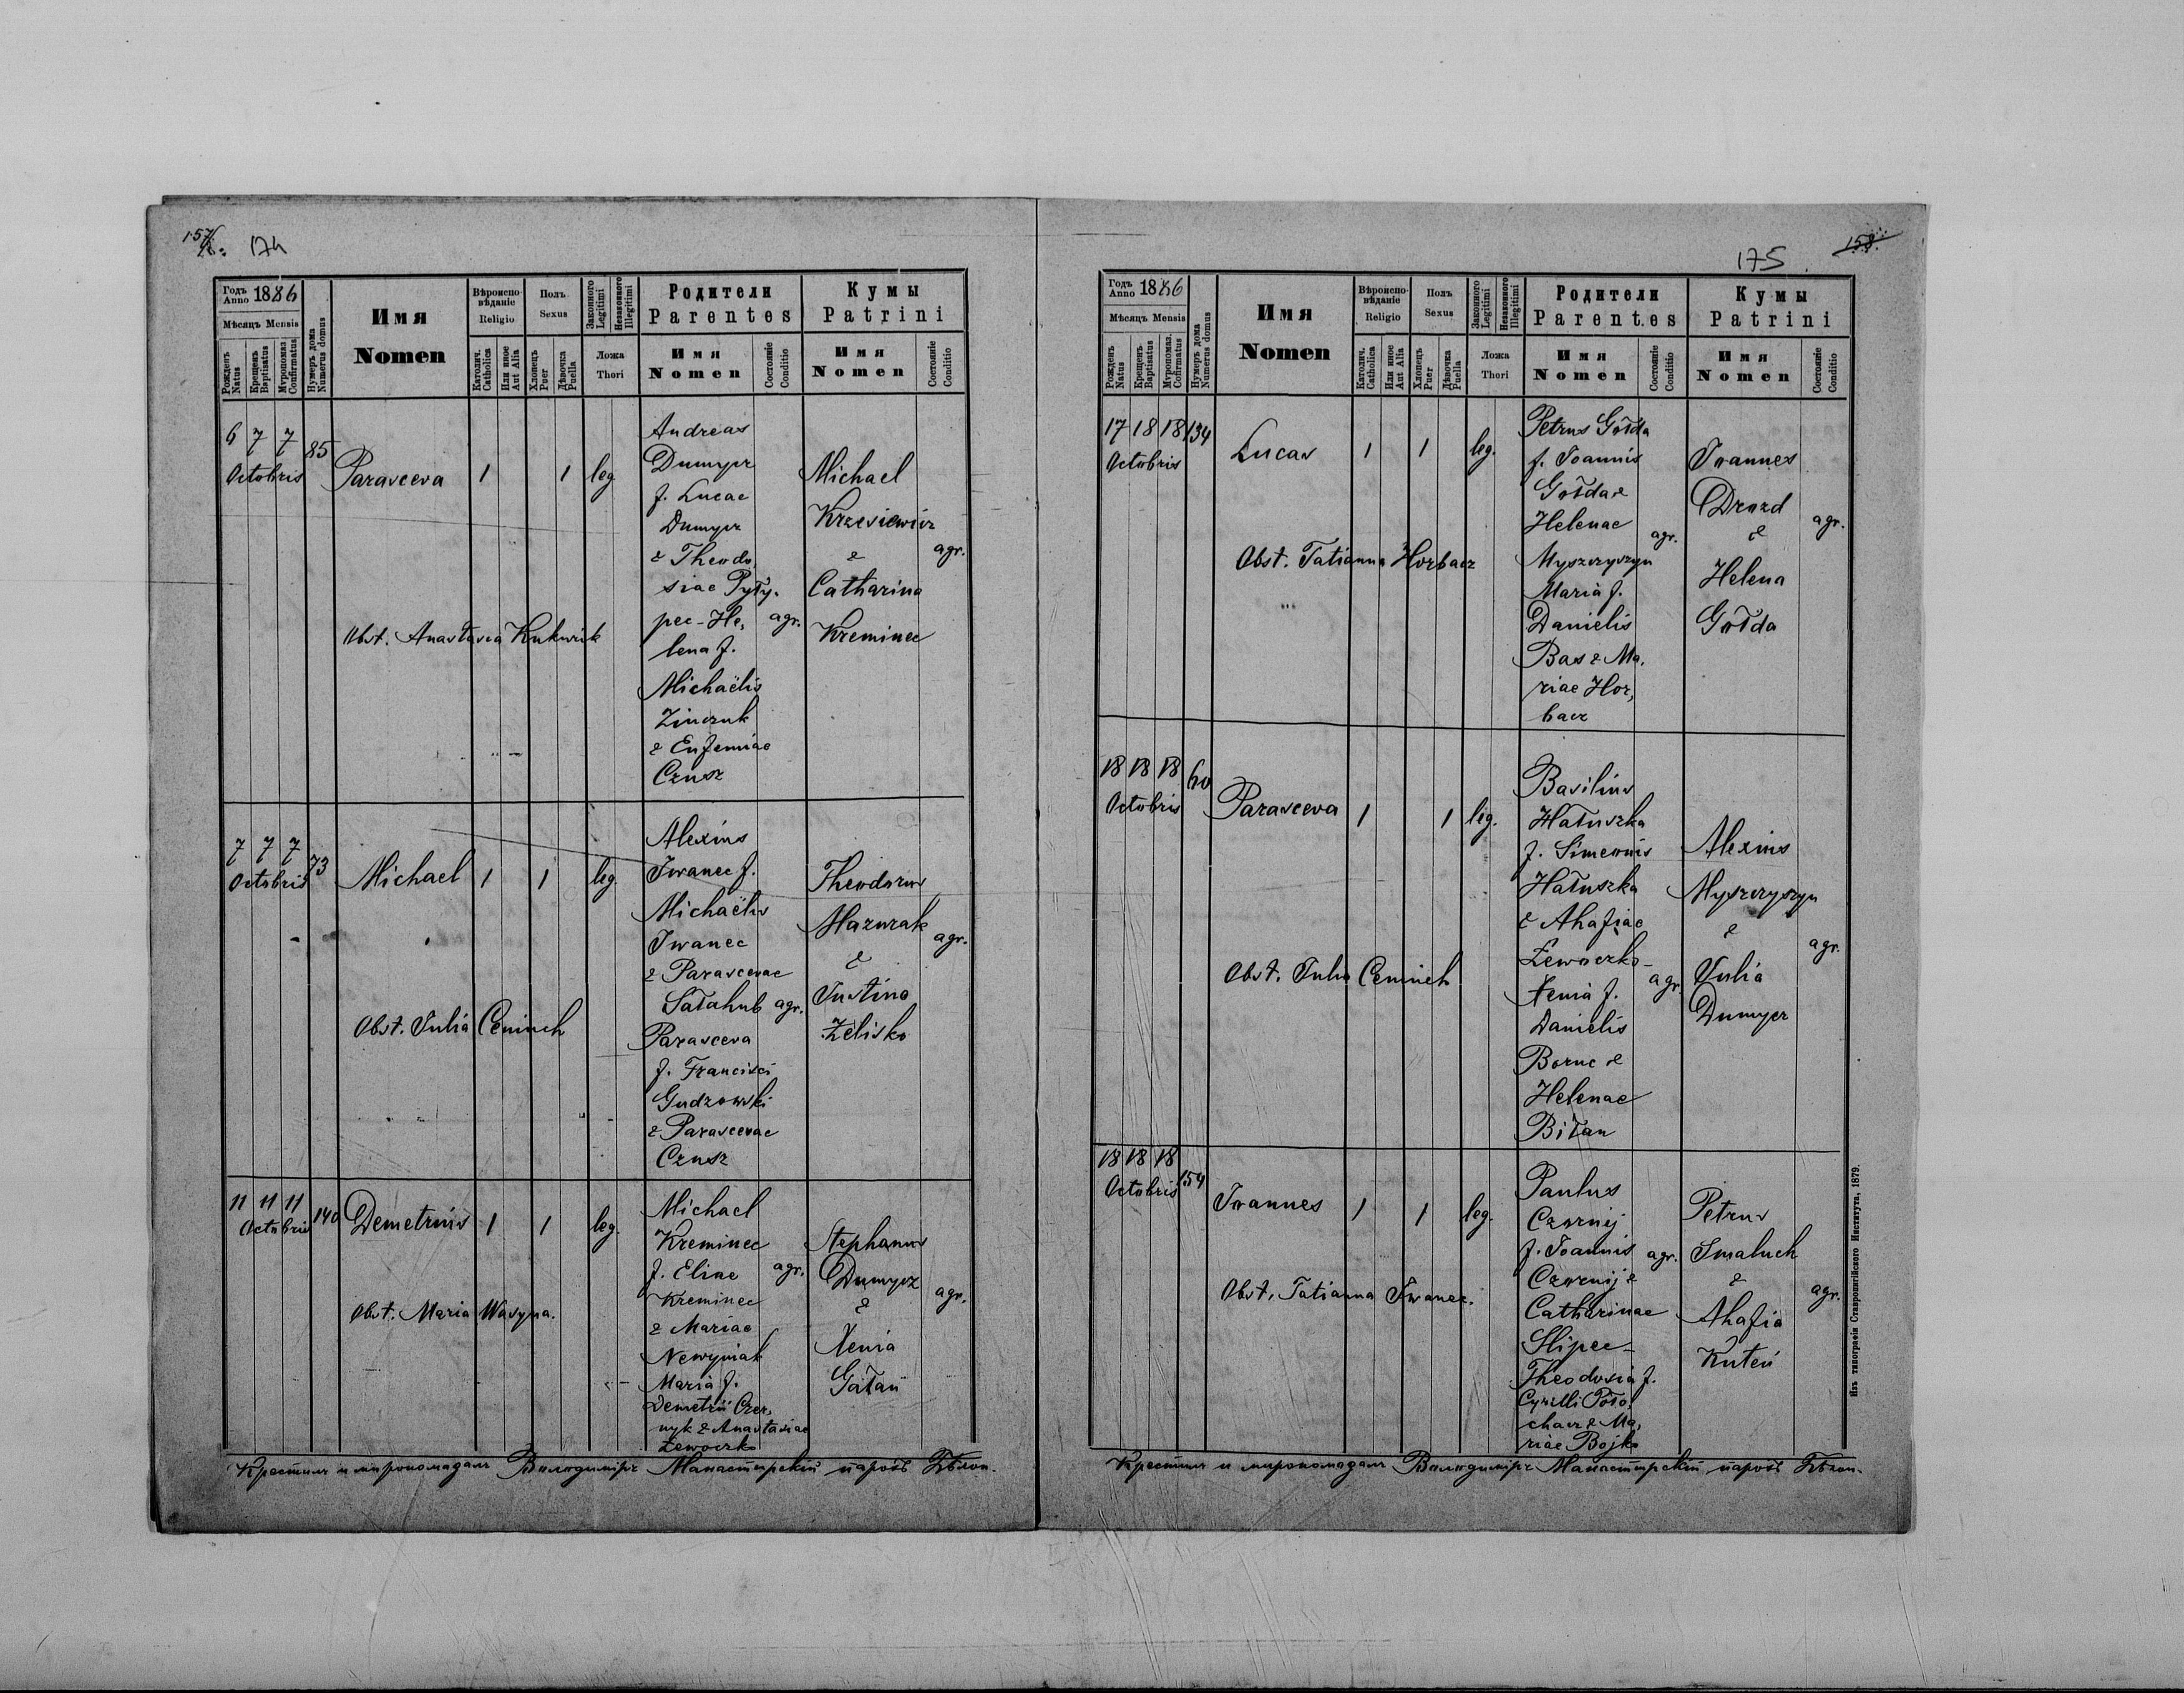 157.
174
Годъ Anno 1886
Мѣсяцъ Mensis
Рожденъ Natus
Крещенъ Baptisatus
Мѵропомаз. Confirmatus
Нумеръ дома Numerus domus
Имя
Nomen
Вѣроиспо-
вѣданіе
Religio
Католич. Catholica
Или иное Aut Alia
Полъ
Sexus
Хлопецъ Puer
Дѣвочка Puella
Законного Legitimi
Незаконного Illegitimi
Ложа
Thori
Родители
Parentes
Имя
Nomen
Состояніе Conditio
Кумы
Patrini
Имя
Nomen
Состояніе Conditio
6 7 7 85
Octobris
Parasceva 1 1 leg.
Obst. Anastasia Kukurik
Andreas
Dumycz
f. Lucae
Dumycz
& Theodo
siae Pyły-
pec - He,
lena f.
Michaëlis
Zinczuk
& Eufemiae
Czusz
agr.
Michael
Krzesiewicz
&
Catharina
Kreminec
agr.
7 7 7 73
Octobris
Michael 1 1 leg.
Obst. Julia Ceminch
Alexius
Iwanec f.
Michaëlis
Iwanec
& Parascevae
Sałahub agr.
Parasceva
f. Francisci
Gudzowski
& Parascevae
Czusz
Theodorus
Mazurak
&
Justina
Żelisko
agr.
11 11 11 140
Octobris
Demetrius 1 1 leg.
Obst. Maria Wasyna.
Michael
Kreminec
f. Eliae agr.
Kreminec
& Mariae
Newyniak
Maria f.
Demetrii Czer,
nyk & Anastasiae
Lewoczko
Stephanus
Dumycz
&
Xenia
Gałań
agr.
Крестилъ и миропомазалъ Володимиръ Манастирскій парохъ Бѣлон.
175
158.
Годъ Anno 1886
Мѣсяцъ Mensis
Рожденъ Natus
Крещенъ Baptisatus
Мѵропомаз. Confirmatus
Нумеръ дома Numerus domus
Имя
Nomen
Вѣроиспо-
вѣданіе
Religio
Католич. Catholica
Или иное Aut Alia
Полъ
Sexus
Хлопецъ Puer
Дѣвочка Puella
Законного Legitimi
Незаконного Illegitimi
Ложа
Thori
Родители
Parentes
Имя
Nomen
Состояніе Conditio
Кумы
Patrini
Имя
Nomen
Состояніе Conditio
17 18 18 134
Octobris
Lucas 1 1 leg.
Obst. Tatianna Horbacz
Petrus Gołda
f. Joannis
Gołda &
Helenae
agr.
Myszczyszyn
Maria f.
Danielis
Bas & Ma,
riae Hor,
bacz
Joannes
Drozd
&
Helena
Gołda
agr.
18 18 18 60
Octobris
Parasceva 1 1 leg.
Obst. Julia Ceminch
Basilius
Hałuszka
f. Simeonis
Hałuszka
& Ahafiae
Lewoczko -
Xenia f. agr.
Danielis
Boruc &
Helenae
Biłan
Alexius
Myszczyszyn
&
Julia
Dumycz
agr.
18 18 18 154
Octobris
Joannes 1 1 leg.
Obst. Tatianna Iwanec.
Paulus
Czornij
f. Joannis agr.
Czornij &
Catharinae
Slipec -
Theodosia f.
Cyrilli Poto,
chacz & Ma,
riae Bojko
Petrus
Smaluch
&
Ahafia
Kuteń
agr.
Крестилъ и миропомазалъ Володимиръ Манастирскій парохъ Бѣлон.
Изъ типографіи Ставропигійского Института, 1879.